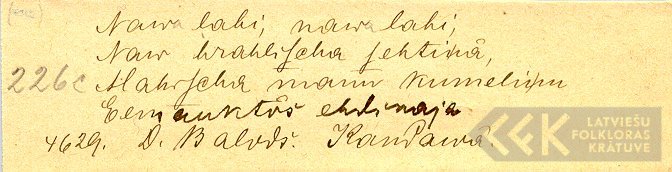 Nawa labi, nawa labi,
Naw brahlischa sehtinâ,
226c Mahrscha manu kumeliņu
Eem auktôs ehdinaja
4629. D. Balods. Kandawâ.
LATVIEŠU
FOLKLORAS
KRĀTUVE